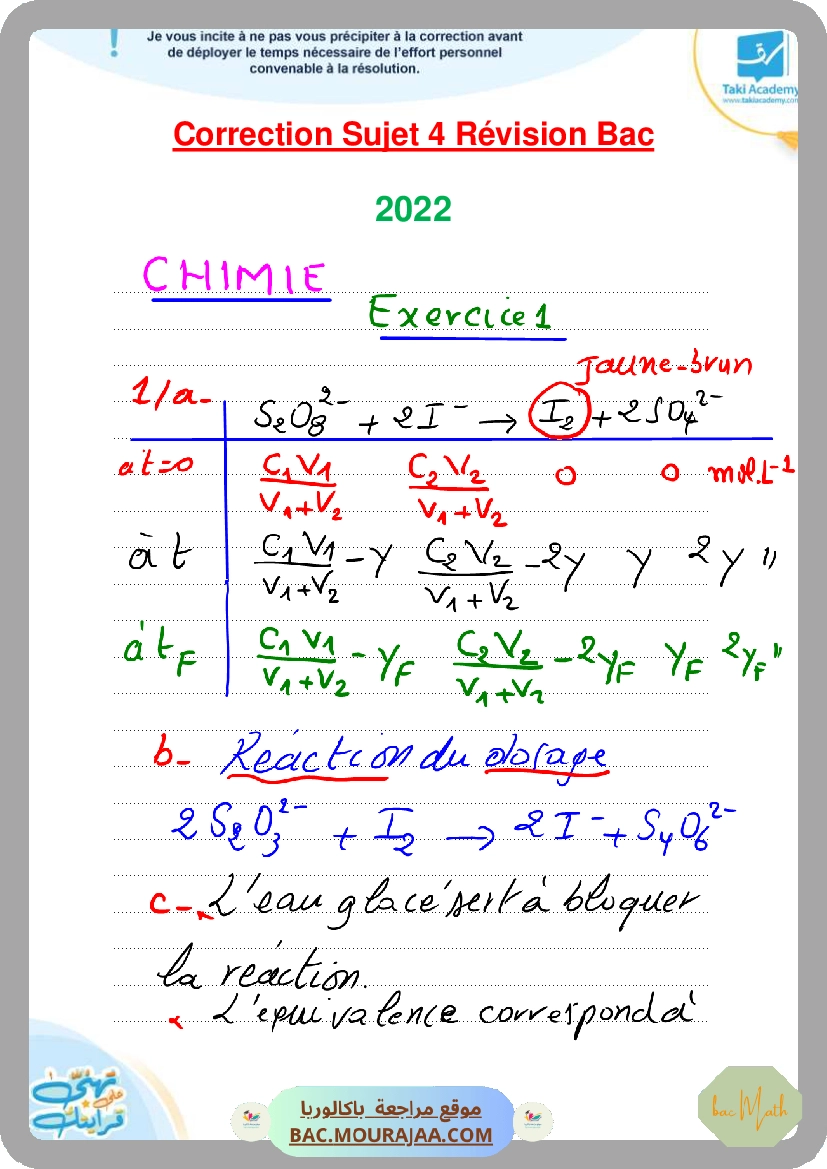 ! Je vous incite à ne pas vous précipiter à la correction avant
de déployer le temps nécessaire de l'effort personnel
convenable à la résolution.
Taki Academy
www.takiacademy.com
Correction Sujet 4 Révision Bac
2022
CHIMIE
Exercice 1
Jaune-brun
1/a- S₂O₈²⁻ + 2I⁻ → I₂ + 2SO₄²⁻
à t=0 C₁V₁/(V₁+V₂) C₂V₂/(V₁+V₂) 0 0 mol.L⁻¹
à t C₁V₁/(V₁+V₂) - y C₂V₂/(V₁+V₂) - 2y y 2y "
à t_F C₁V₁/(V₁+V₂) - y_F C₂V₂/(V₁+V₂) - 2y_F y_F 2y_F "
b- Réaction du dosage
2S₂O₃²⁻ + I₂ → 2I⁻ + S₄O₆²⁻
c- L'eau glacé sert à bloquer
la réaction.
L'équivalence correspond à
تهنى
على
قرايتك
موقع مراجعة باكالوريا
BAC.MOURAJAA.COM
bac Math